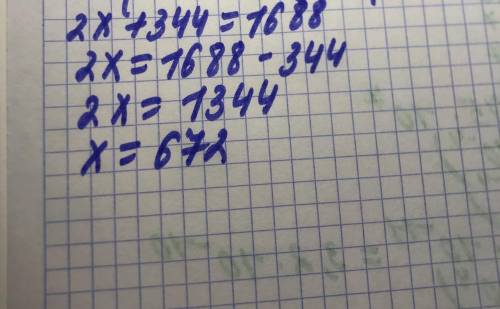 2x + 344 = 1688
2x = 1688 - 344
2x = 1344
x = 672